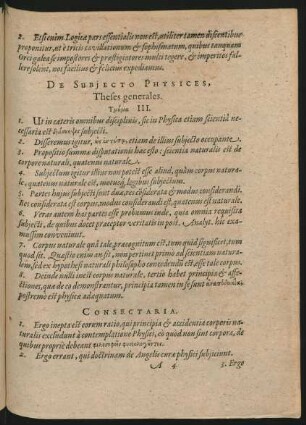 2. Etsi enim Logicæ pars essentialis non est, utiliter tamen discentibus
proponitur, ut è tricis cavillationum & sophismatum, quibus tanquam
Orci galea se impostores & præstigiatores multi tegere, & imperitis fallere
solent, nos facilius & felicius expediamus.
DE SUBJECTO PHYSICES,
Theses generales.
III.
1. Ut in cæteris omnibus disciplinis, sic in Physica etiam scientiâ necessaria
est subjecti.
2. Disseremus igitur, etiam de illius subjecto occupante.
3. Propositio summa disputationis hæc esto: scientia naturalis est de
corpore naturali, quatenus naturale.
4. Subjectum igitur illius non potest esse aliud, quàm corpus naturale,
quatenus naturale est, legitimus subjectum.
5. Partes hujus subjecti sunt duæ, res considerata & modus considerandi.
Res considerata est corpus, modus considerandi est, quatenus est naturale.
6. Veras autem has partes esse probamus inde, quia omnia requisita
subjecti, de quibus docet præceptor veritatis in post. Analyt. his examussim
conveniunt.
7. Corpus naturale quâ tale præcognitum est, tum quid significet, tum
quod sit. Quæstio enim an sit, non pertinet primò ad scientiam naturalem,
sed ex hypothesi naturali philosopho concedendū est, esse tale corpus.
8. Deinde nulli inest corpori naturale, tertiò habet principia & affectiones,
quæ de eo demonstrantur, principia tamen in se sunt
postremò est physicæ adæquatum.
CONSECTARIA.
1. Ergo inepta est eorum ratio, qui principia & accidentia corporis naturalis
excludunt à contemplatione Physici, eò quòd non sunt corpora, de
quibus propriè debeat
2. Ergo errant, qui doctrinam de Angelis curæ physici subjiciunt.
A 4 3. Ergo